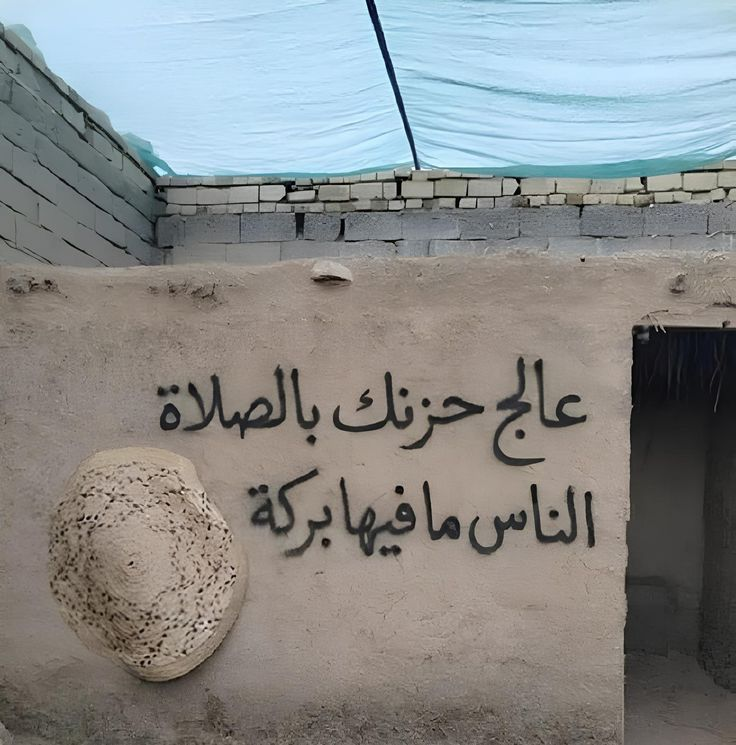 عالج حزنك بالصلاة
الناس مافيها بركة